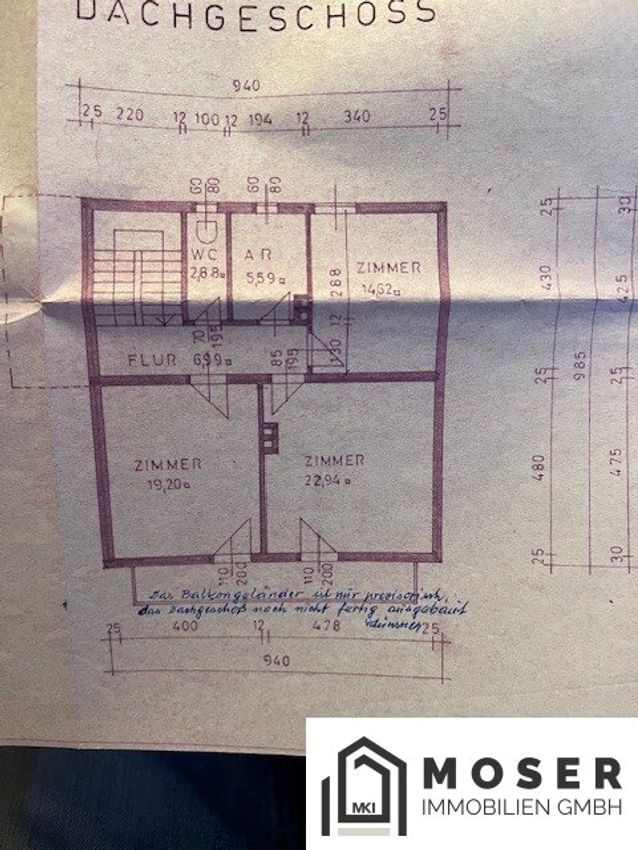 DACHGESCHOSS
940
25 220 12 100 12 194 12 340 25
60 80 60 80
WC
2,88
AR
5,59
ZIMMER
14,62
288
12
130
FLUR 6,99
70 195
85 195
ZIMMER
19,20
ZIMMER
22,94
110 200
110 200
Das Balkongeländer ist nur provisorisch,
das Dachgeschoß noch nicht fertig ausgebaut
25 400 12 478 25
940
25
430
25
480
25
985
30
425
25
475
30
MOSER
IMMOBILIEN GMBH
MKI